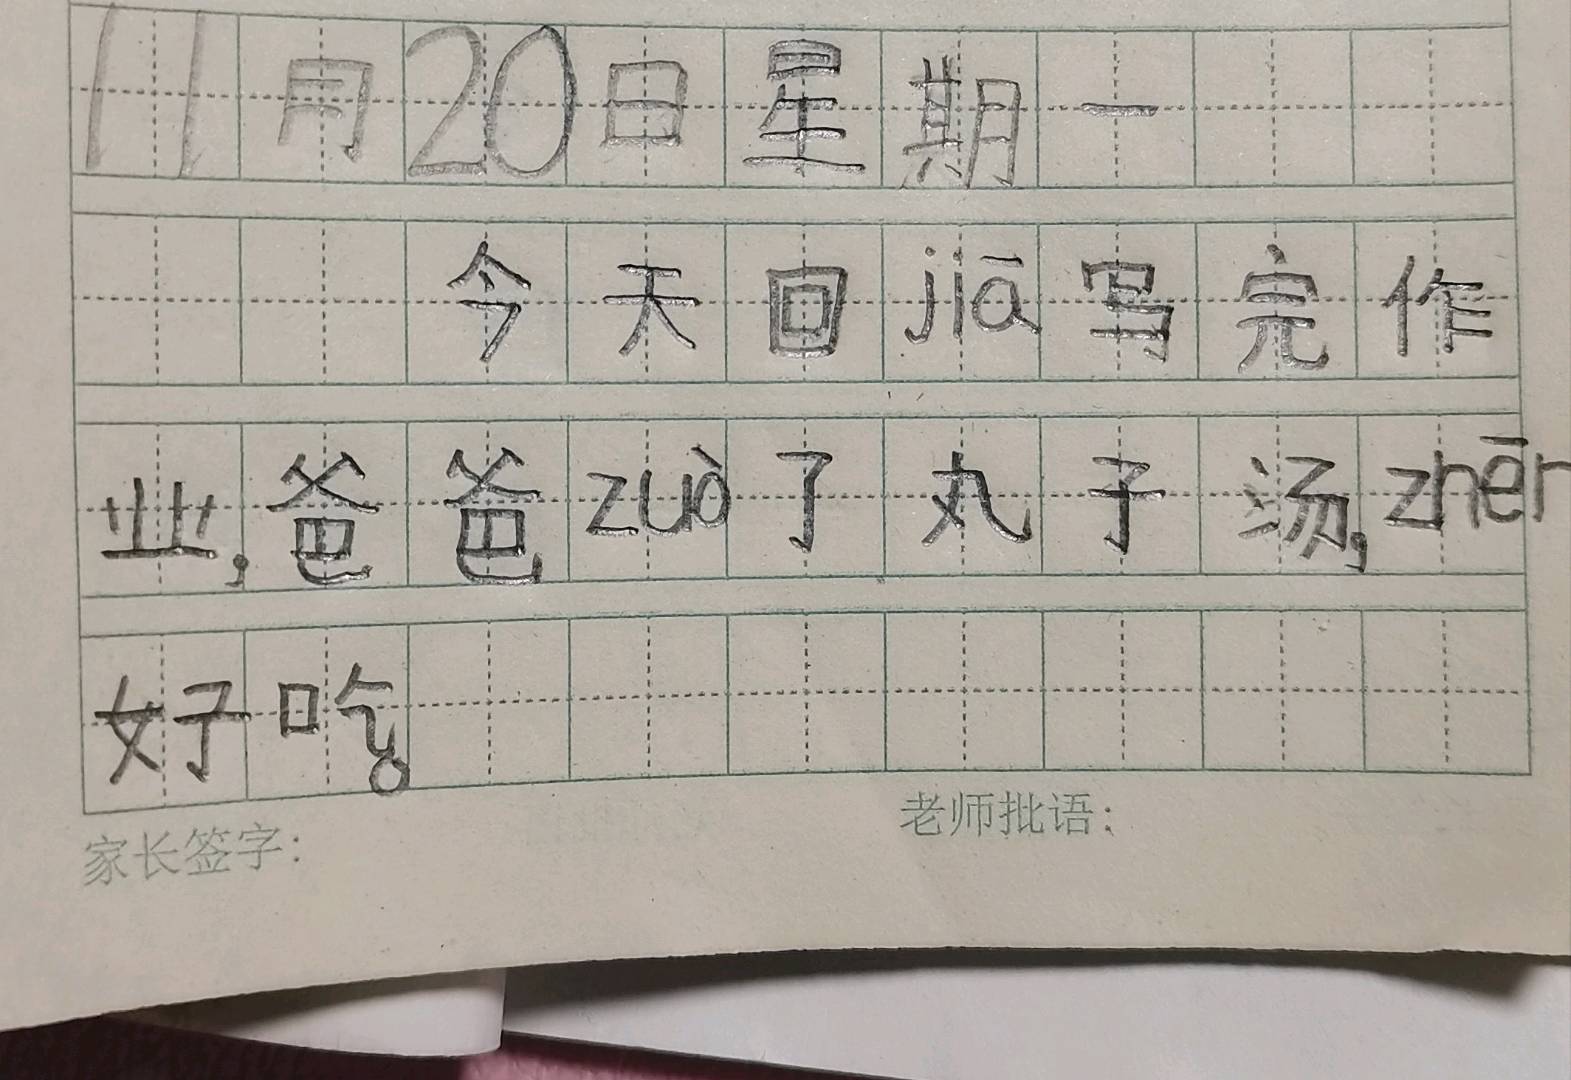 11月20日星期一
今天回jiā写完作
业,爸爸zuò了丸子汤,zhēn
好吃。
家长签字: 老师批语: